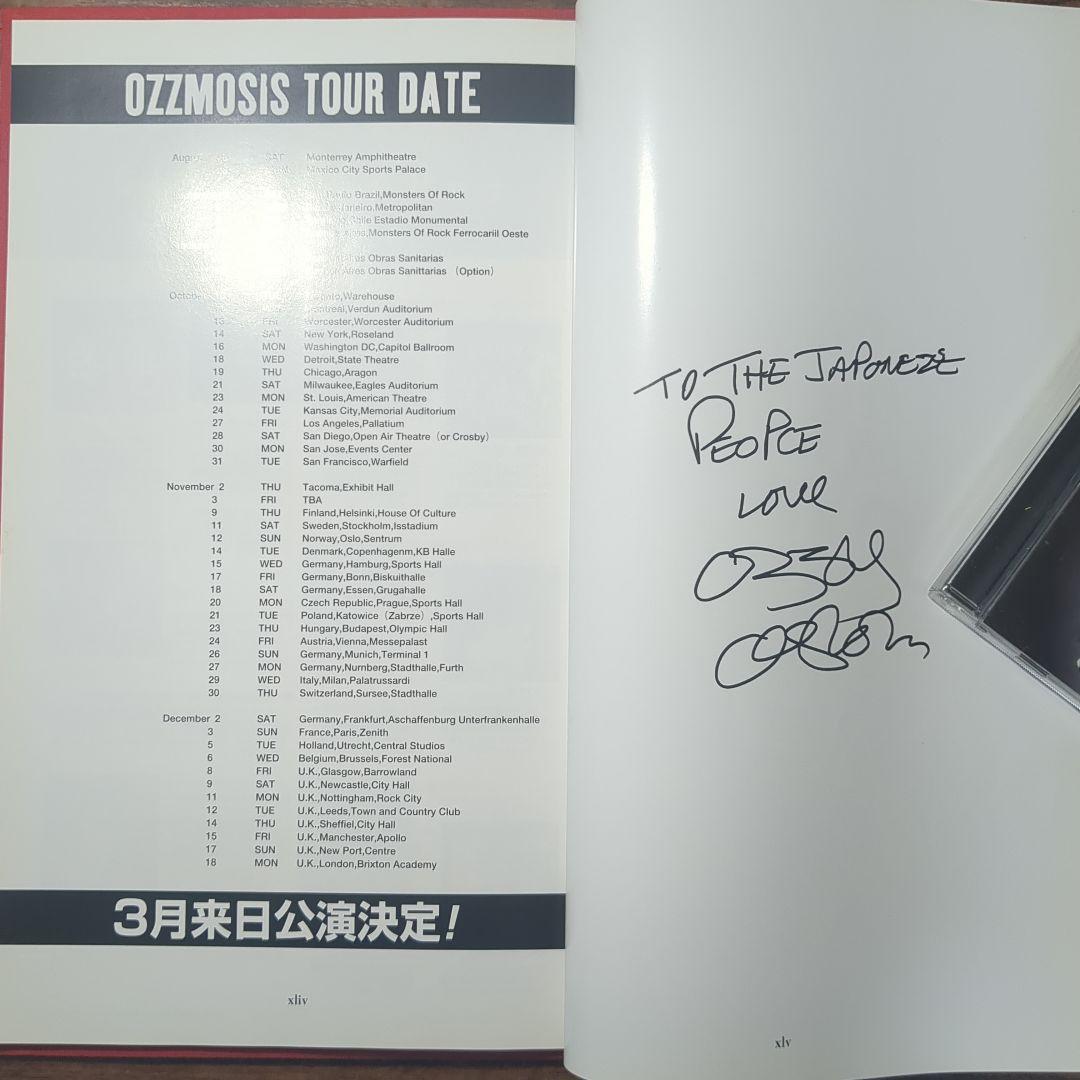 OZZMOSIS TOUR DATE
SAT Monterrey Amphitheatre
Mexico City Sports Palace
Brazil,Monsters Of Rock
Metropolitan
Estadio Monumental
Monsters Of Rock Ferrocariil Oeste
Obras Sanitarias
Obras Sanittarias （Option）
Warehouse
Verdun Auditorium
13 FRI Worcester,Worcester Auditorium
14 SAT New York,Roseland
16 MON Washington DC,Capitol Ballroom
18 WED Detroit,State Theatre
19 THU Chicago,Aragon
21 SAT Milwaukee,Eagles Auditorium
23 MON St. Louis,American Theatre
24 TUE Kansas City,Memorial Auditorium
27 FRI Los Angeles,Pallatium
28 SAT San Diego,Open Air Theatre（or Crosby）
30 MON San Jose,Events Center
31 TUE San Francisco,Warfield
November 2 THU Tacoma,Exhibit Hall
3 FRI TBA
9 THU Finland,Helsinki,House Of Culture
11 SAT Sweden,Stockholm,Isstadium
12 SUN Norway,Oslo,Sentrum
14 TUE Denmark,Copenhagenm,KB Halle
15 WED Germany,Hamburg,Sports Hall
17 FRI Germany,Bonn,Biskuithalle
18 SAT Germany,Essen,Grugahalle
20 MON Czech Republic,Prague,Sports Hall
21 TUE Poland,Katowice（Zabrze）,Sports Hall
23 THU Hungary,Budapest,Olympic Hall
24 FRI Austria,Vienna,Messepalast
26 SUN Germany,Munich,Terminal 1
27 MON Germany,Nurnberg,Stadthalle,Furth
29 WED Italy,Milan,Palatrussardi
30 THU Switzerland,Sursee,Stadthalle
December 2 SAT Germany,Frankfurt,Aschaffenburg Unterfrankenhalle
3 SUN France,Paris,Zenith
5 TUE Holland,Utrecht,Central Studios
6 WED Belgium,Brussels,Forest National
8 FRI U.K.,Glasgow,Barrowland
9 SAT U.K.,Newcastle,City Hall
11 MON U.K.,Nottingham,Rock City
12 TUE U.K.,Leeds,Town and Country Club
14 THU U.K.,Sheffiel,City Hall
15 FRI U.K.,Manchester,Apollo
17 SUN U.K.,New Port,Centre
18 MON U.K.,London,Brixton Academy
3月来日公演決定!
xliv
TO THE JAPONEZE
PEOPLE
LOVE
OZZY
OSBOURNE
xlv